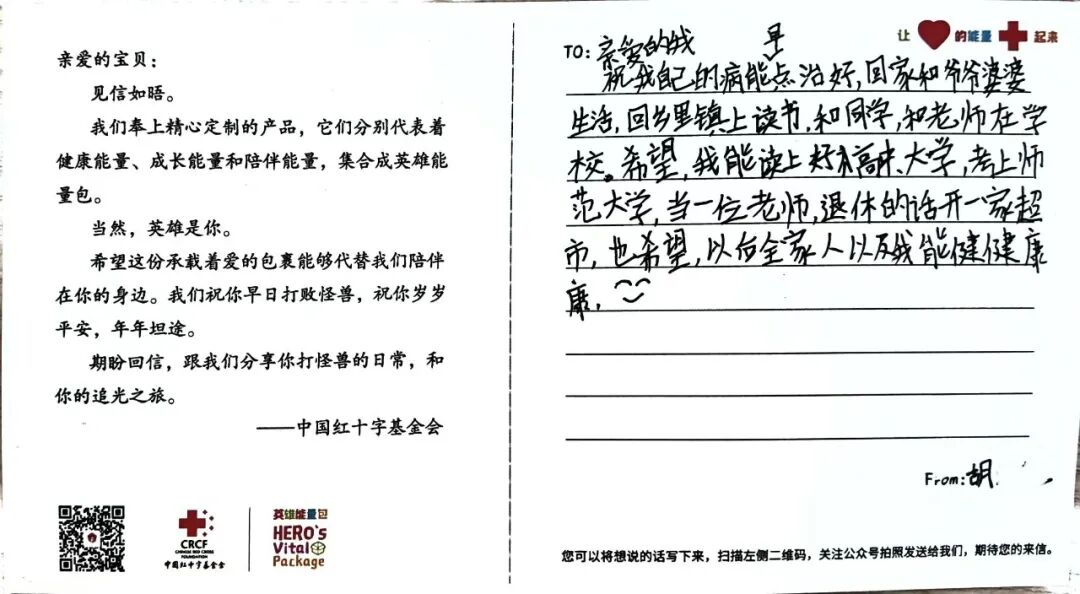 亲爱的宝贝：
见信如晤。
我们奉上精心定制的产品，它们分别代表着
健康能量、成长能量和陪伴能量，集合成英雄能
量包。
当然，英雄是你。
希望这份承载着爱的包裹能够代替我们陪伴
在你的身边。我们祝你早日打败怪兽，祝你岁岁
平安，年年坦途。
期盼回信，跟我们分享你打怪兽的日常，和
你的追光之旅。
——中国红十字基金会
CRCF
CHINESE RED CROSS
FOUNDATION
中国红十字基金会
英雄能量包
HERO's
Vital
Package
让 的能量 起来
TO: 亲爱的我
祝我自己的病能早点治好,回家和爷爷婆婆
生活,回乡里镇上读书,和同学,和老师在学
校。希望,我能读上好高中、大学,考上师
范大学,当一位老师,退休的话开一家超
市,也希望,以后全家人以及我能健健康
康.
From:胡
您可以将想说的话写下来，扫描左侧二维码，关注公众号拍照发送给我们，期待您的来信。